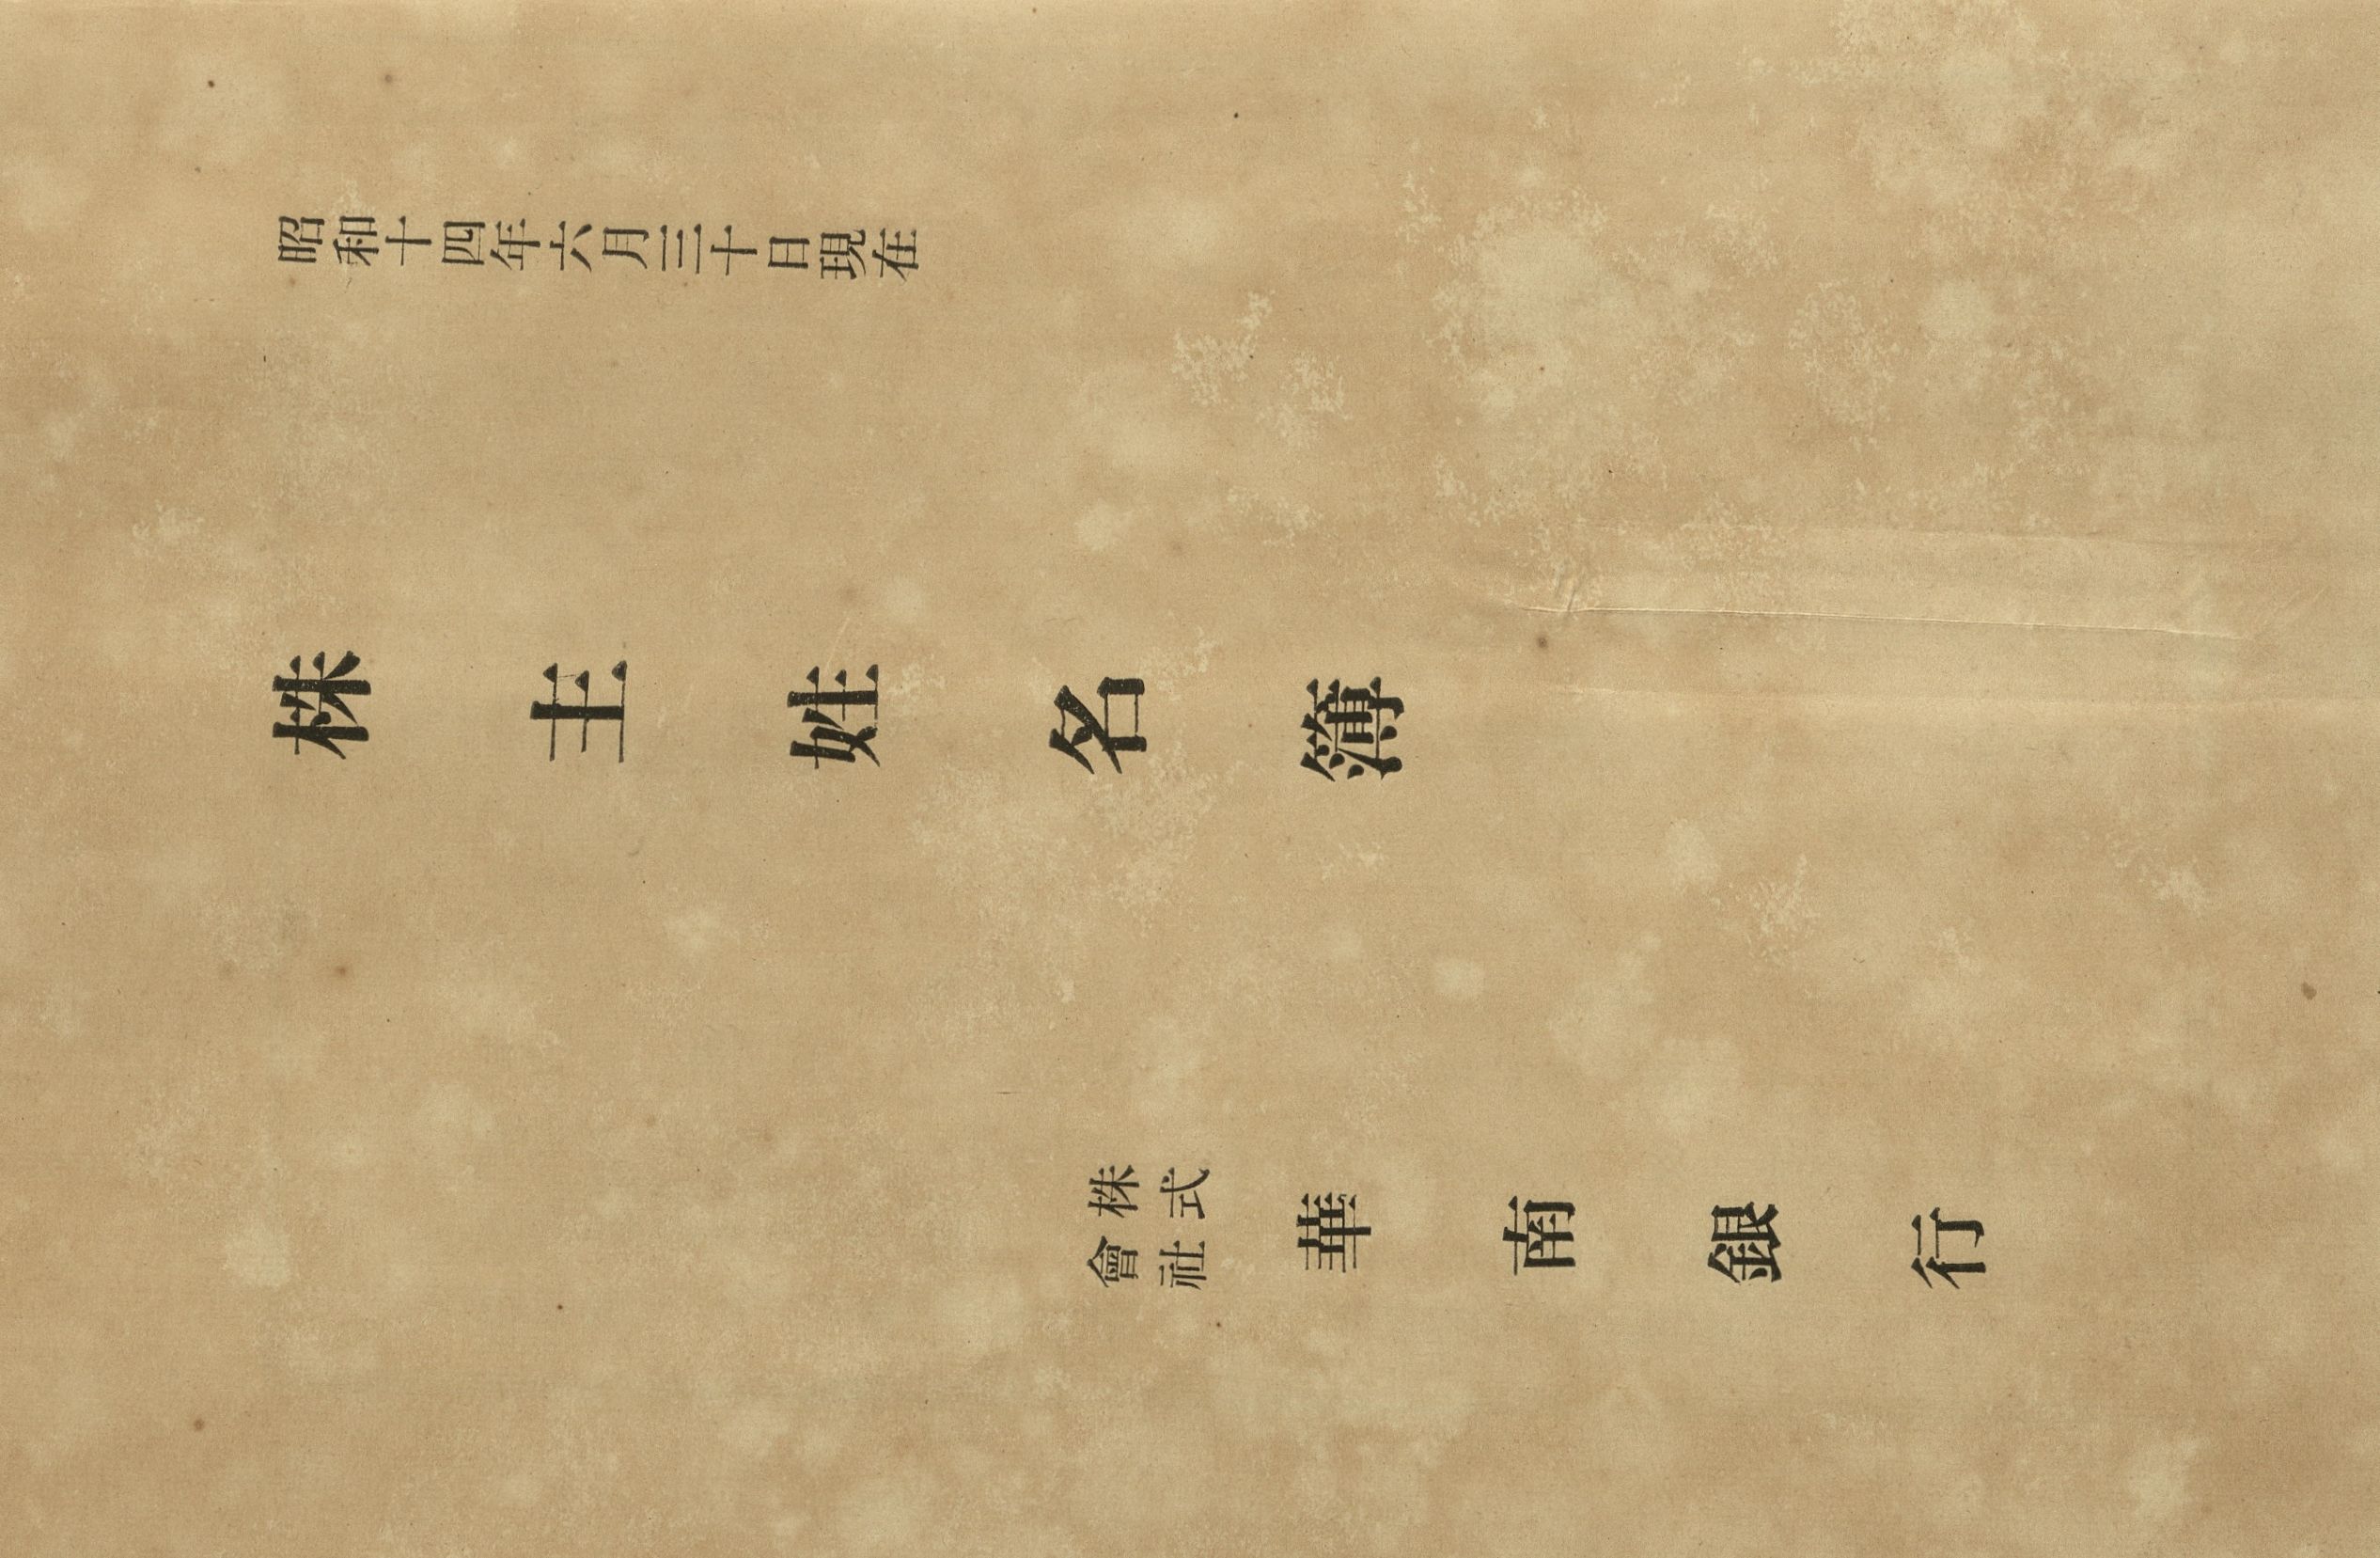 昭和十四年六月三十日現在
株主姓名簿
株式會社華南銀行